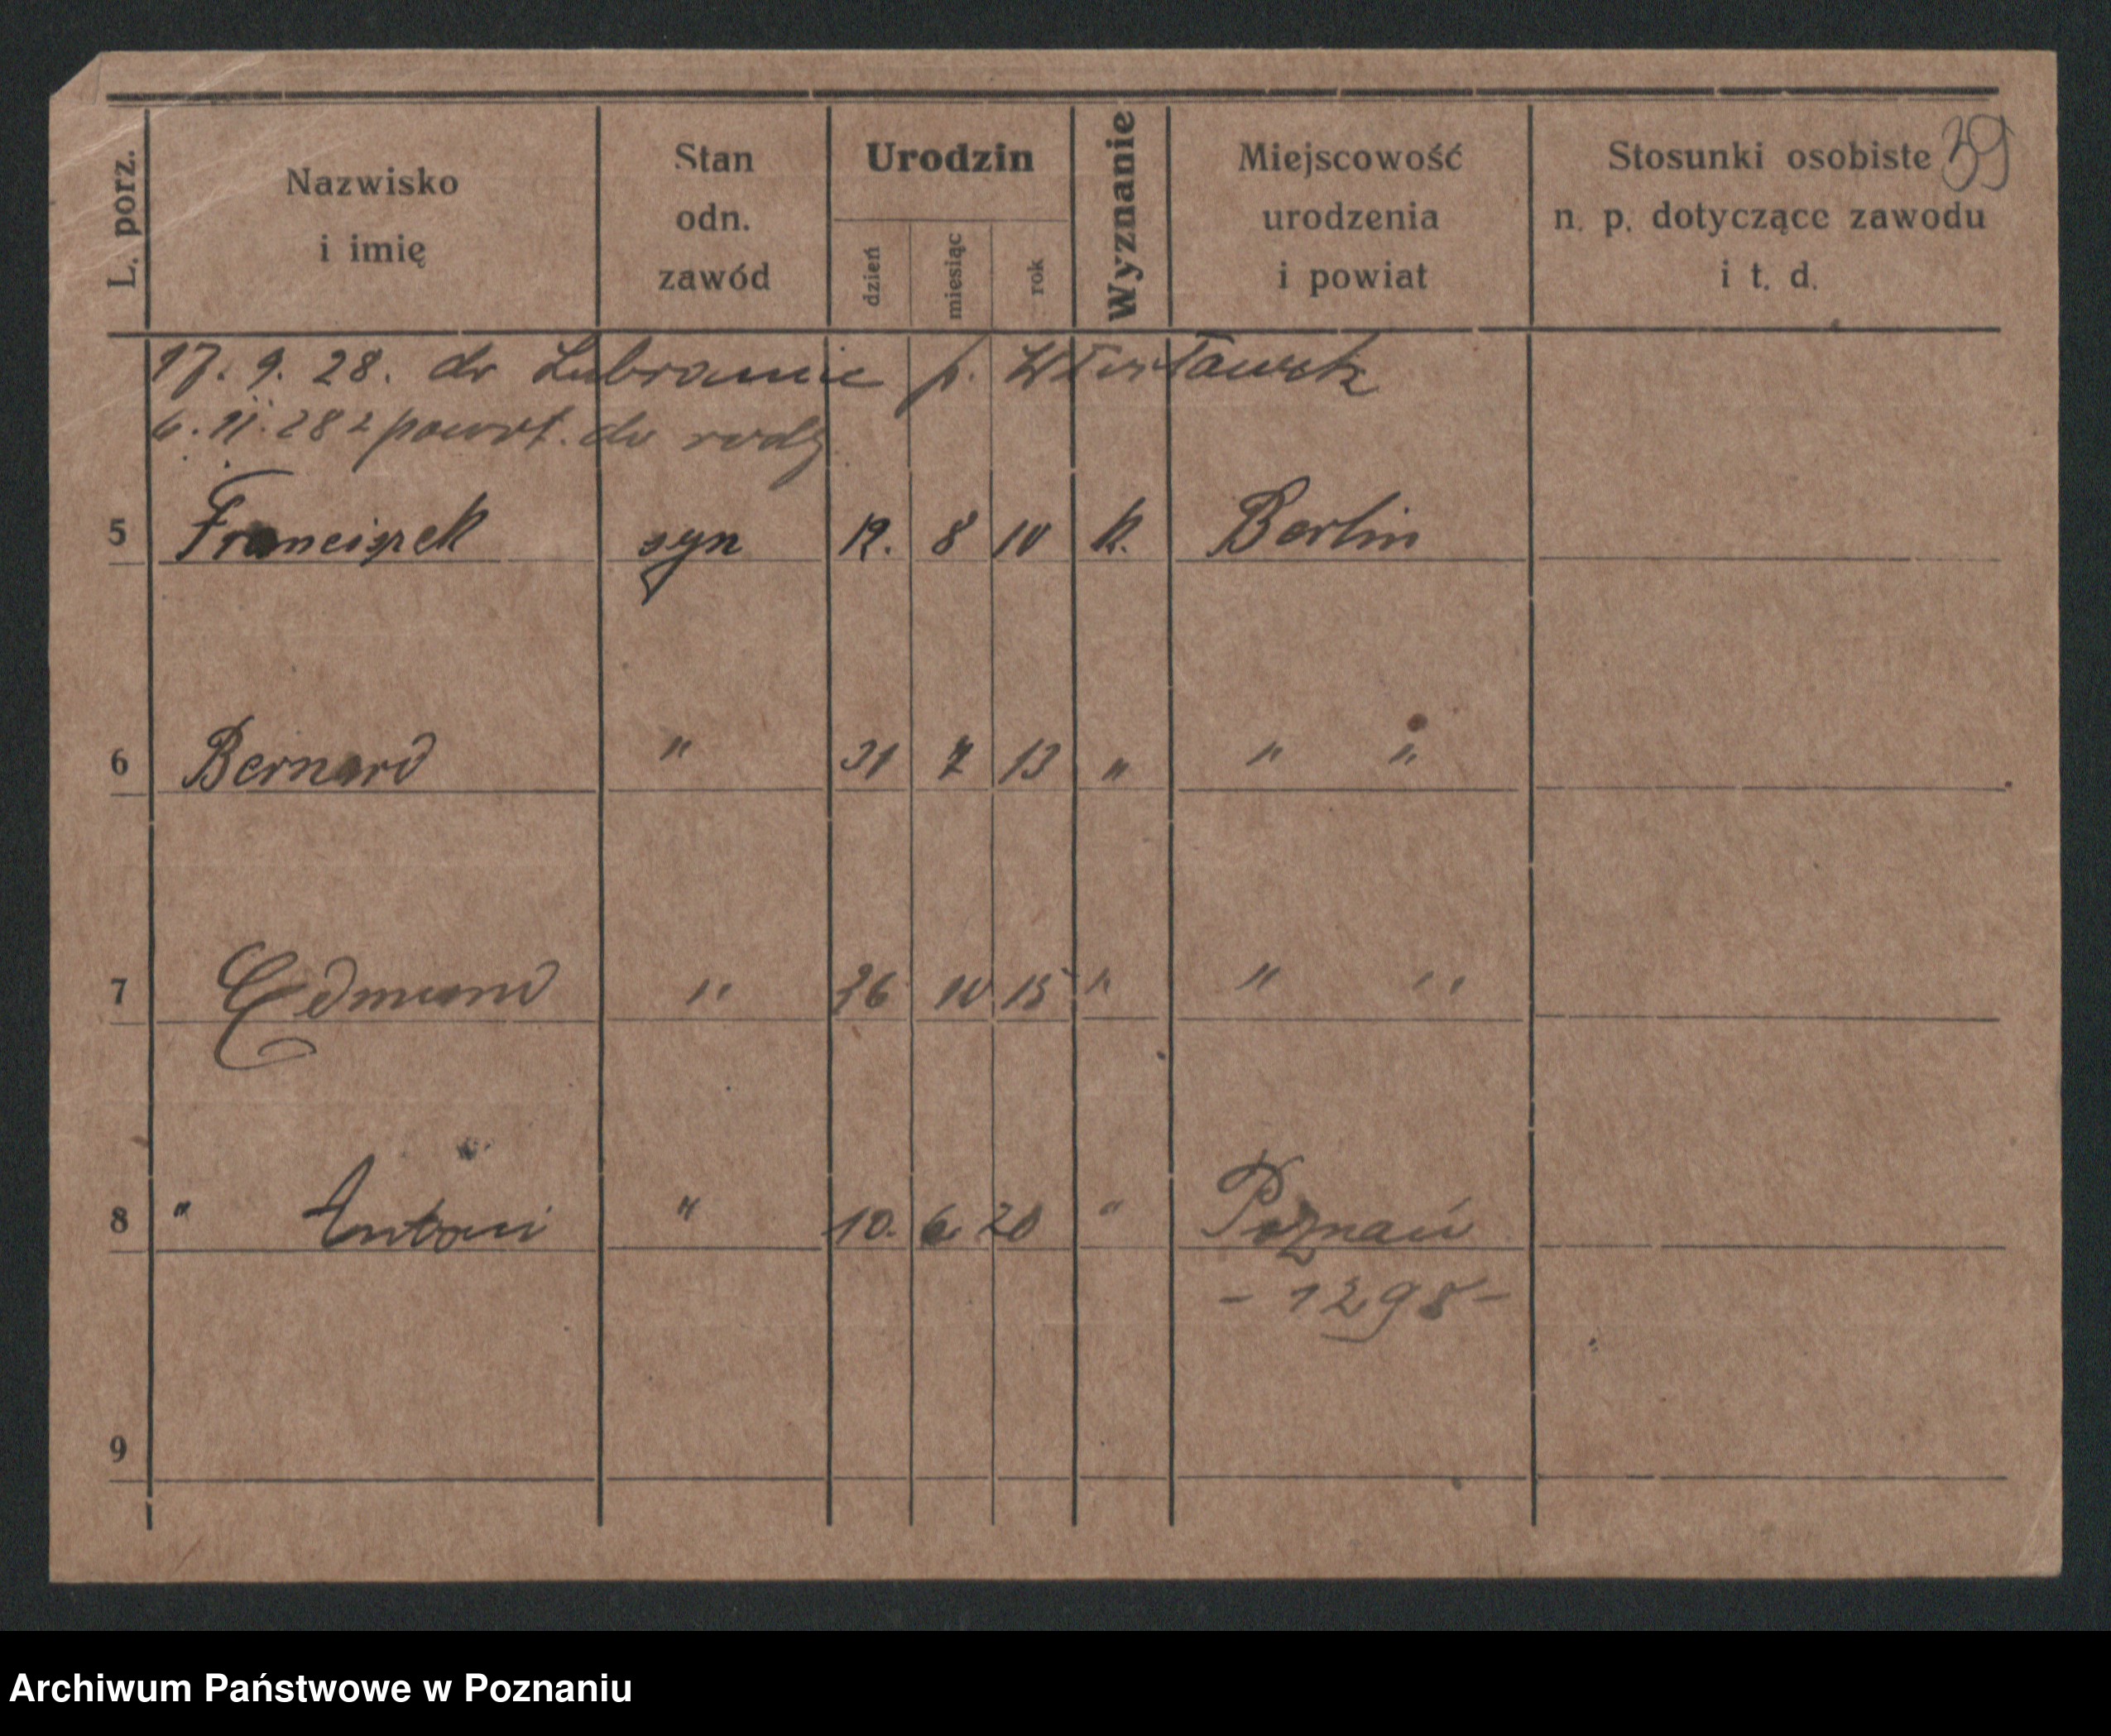 39
L. porz.
Nazwisko
i imię
Stan
odn.
zawód
Urodzin
dzień
miesiąc
rok
Wyznanie
Miejscowość
urodzenia
i powiat
Stosunki osobiste
n. p. dotyczące zawodu
i t. d.
17. 9. 28. do Lubranie p. Włocławek
6. 11. 28 z powrt. do rodz
5 Franciszek syn 12. 8 10 k. Berlin
6 Bernard " 31 7 13 " " "
7 Edmund " 26 10 15 " " "
8 " Antoni " 10. 6 20 " Poznań
- 1298 -
9
Archiwum Państwowe w Poznaniu